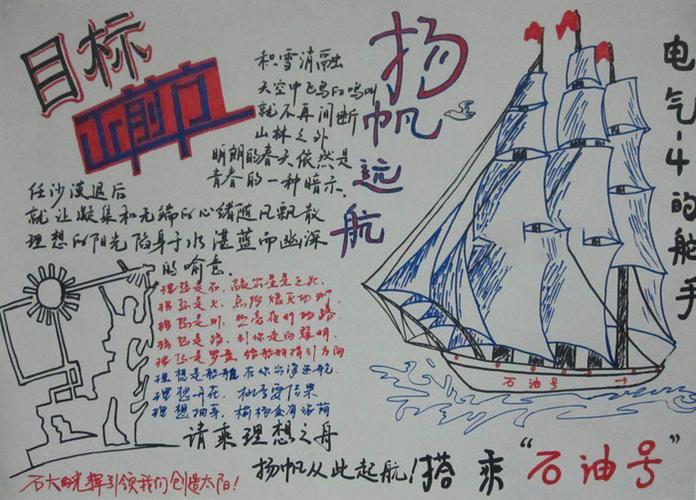 目标
正前方
积雪消融
天空中飞鸟的鸣叫
就不再间断
山林之外
明朗的春天依然是
青春的一种暗示.
任沙漠退后
就让凝集和无端的心绪随风飘散
理想的阳光陷身于水湛蓝而幽深
的喻意.
扬帆远航
电气-4的舵手
理想是石,敲出星星之火.
理想是火,点燃熄灭的灯.
理想是灯,照亮夜行的路.
理想是路,引你走向黎明.
理想是罗盘,给船舶指引方向
理想是船舶,在你出海远航.
理想开花,桃李要结果
理想抽芽,榆杨会有浓荫
请乘理想之舟
扬帆从此起航!搭乘“石油号”
石油号
石大的光辉引领我们创造太阳!